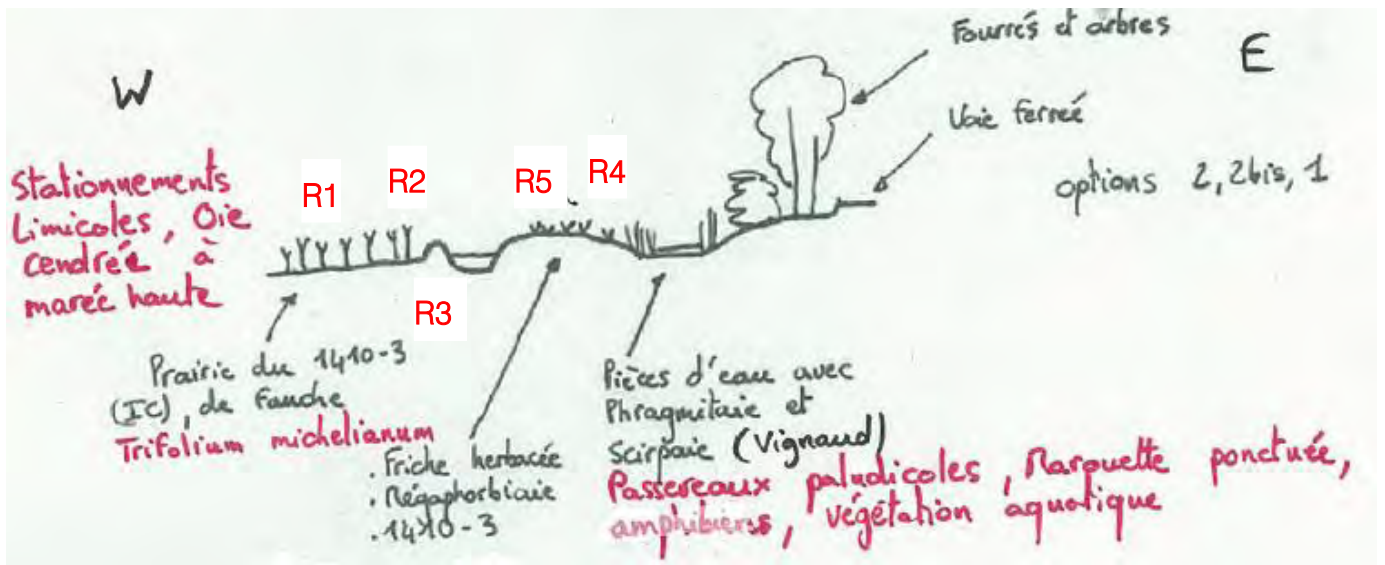 Fourrés et arbres
W
E
Voie ferrée
options 2, 2bis, 1
Stationnements
Limicoles, Oie
cendrée à
marée haute
R1
R2
R5
R4
R3
Prairie du 1410-3
(IC), de fauche
Trifolium michelianum
. Friche herbacée
. Mégaphorbiaie
. 1410-3
Pièces d'eau avec
Phragmitaie et
Scirpaie (Vignaud)
Passereaux paludicoles, Marouette ponctuée,
amphibiens, végétation aquatique